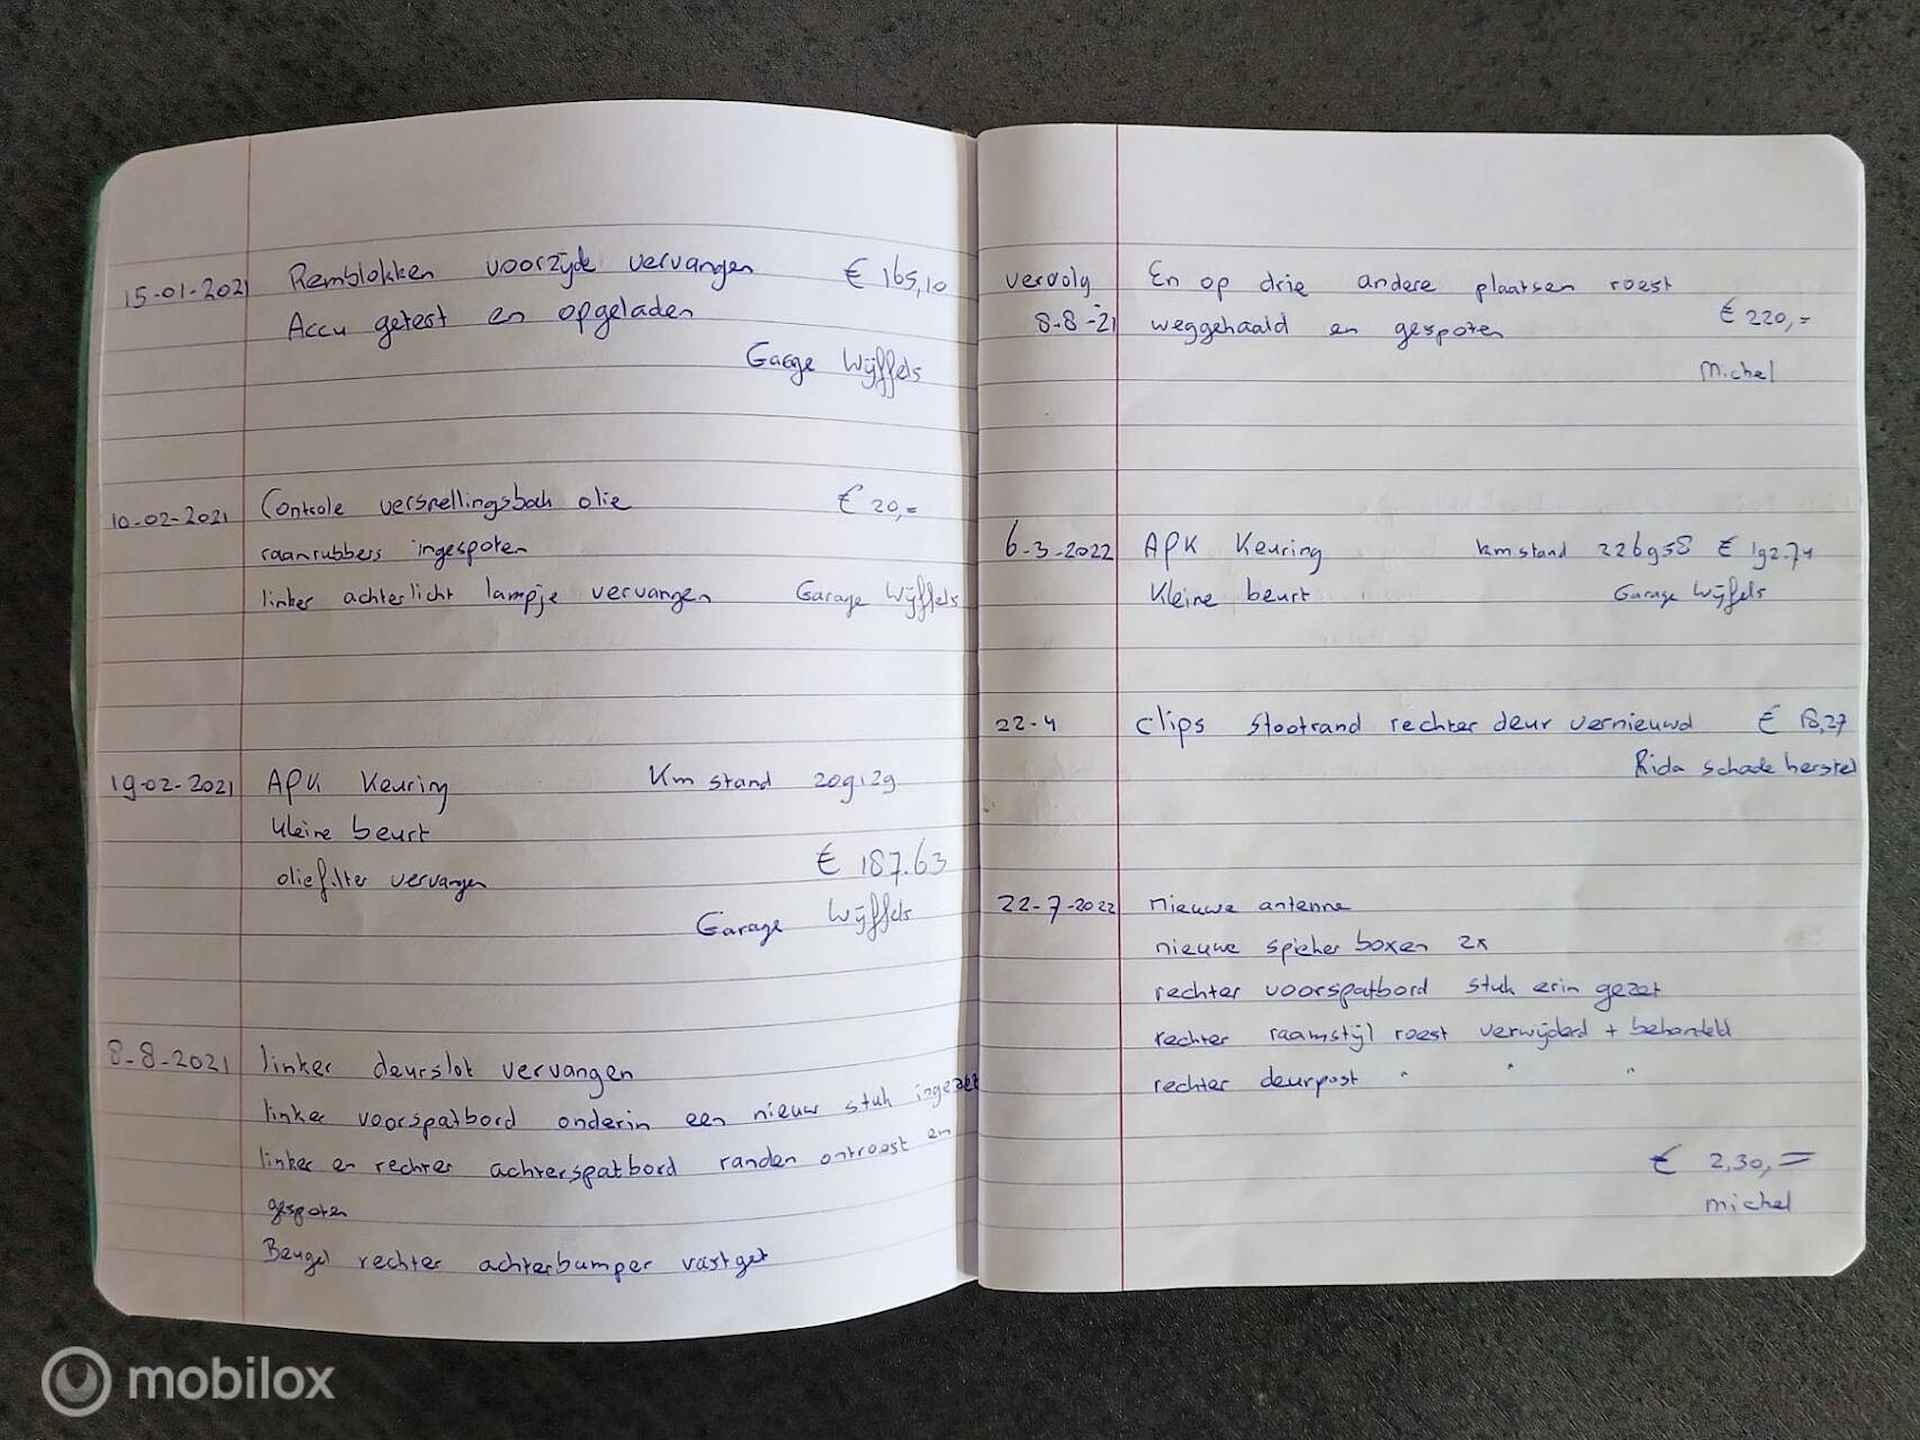 15-01-2021 Remblokken voorzijde vervangen € 165,10
Accu getest en opgeladen
Garage Wijffels
10-02-2021 Controle versnellingsbak olie € 20,=
raamrubbers ingespoten
linker achterlicht lampje vervangen Garage Wijffels
19-02-2021 APK Keuring Km stand 209129
kleine beurt
oliefilter vervangen € 187.63
Garage Wijffels
8-8-2021 linker deurslot vervangen
linker voorspatbord onderin een nieuw stuk ingezet
linker en rechter achterspatbord randen ontroest en
gespoten
Beugel rechter achterbumper vastgez
vervolg En op drie andere plaatsen roest
8-8-21 weggehaald en gespoten € 220,=
Michel
6-3-2022 APK Keuring km stand 226958 € 192.74
Kleine beurt Garage Wijffels
22-4 Clips Stootrand rechter deur vernieuwd € 18,27
Rida schade herstel
22-7-2022 nieuwe antenne
nieuwe spieker boxen 2x
rechter voorspatbord stuk erin gezet
rechter raamstijl roest verwijderd + behandeld
rechter deurpost " " "
€ 2,30,=
michel
mobilox